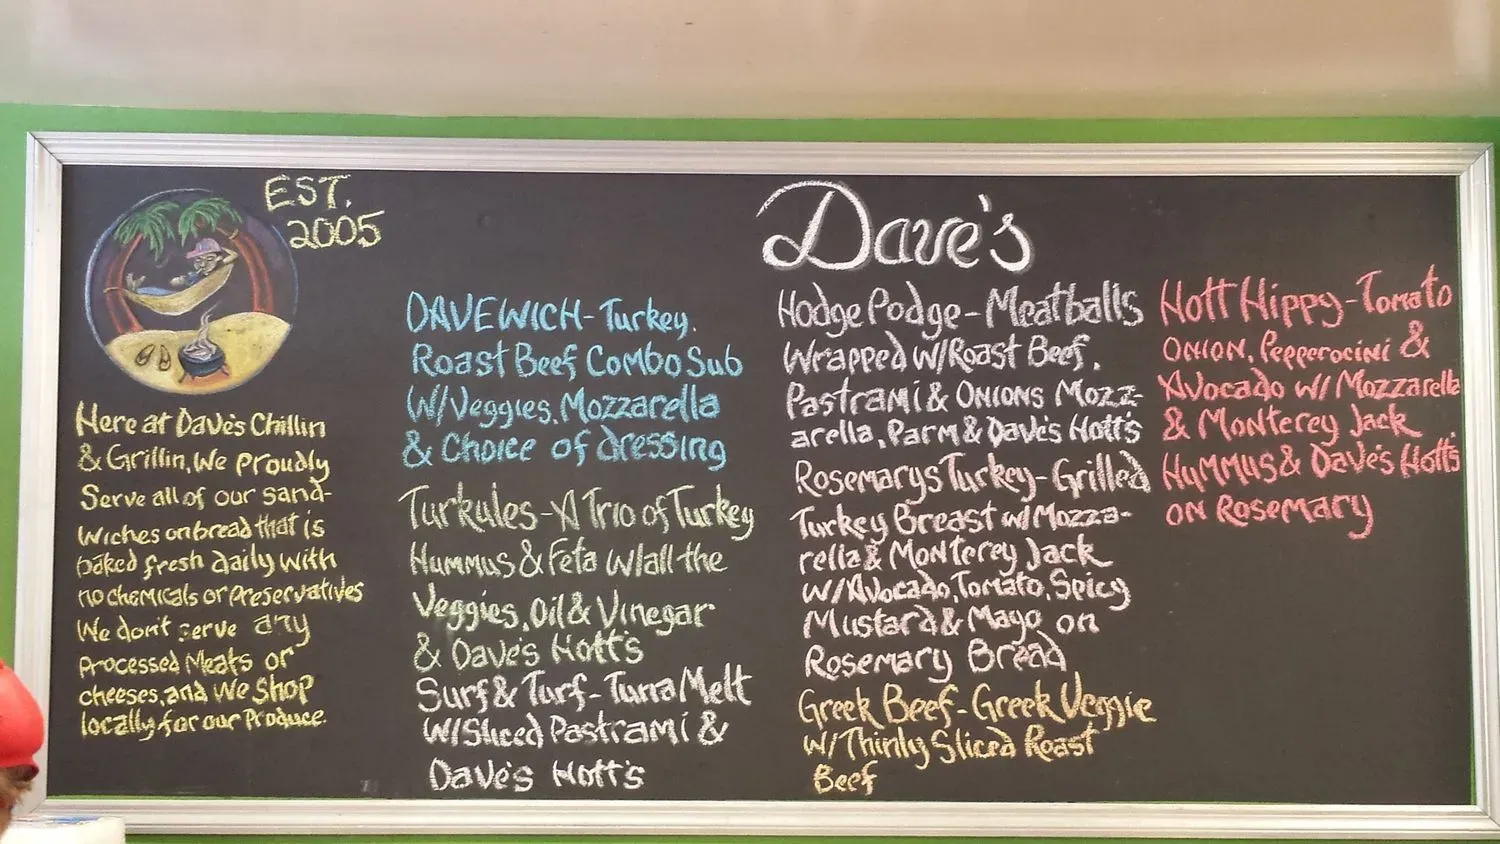 EST.
2005
Here at Dave's Chillin
& Grillin, We Proudly
Serve all of our sand-
wiches on bread that is
baked fresh daily with
no chemicals or preservatives
We don't serve any
Processed Meats or
cheeses, and We Shop
locally for our Produce.
Dave's
DAVEWICH - Turkey,
Roast Beef Combo Sub
W/Veggies, Mozzarella
& Choice of dressing
Turkules - A Trio of Turkey
Hummus & Feta w/all the
Veggies, Oil & Vinegar
& Dave's Hott's
Surf & Turf - Tuna Melt
W/Sliced Pastrami &
Dave's Hott's
Hodge Podge - Meatballs
Wrapped W/Roast Beef,
Pastrami & Onions Mozz-
arella, Parm & Dave's Hott's
Rosemarys Turkey - Grilled
Turkey Breast w/Mozza-
rella & Monterey Jack
W/Avocado, Tomato, Spicy
Mustard & Mayo on
Rosemary Bread
Greek Beef - Greek Veggie
W/Thinly Sliced Roast
Beef
Hott Hippy - Tomato
Onion, Pepperocini &
Avocado w/ Mozzarella
& Monterey Jack
Hummus & Dave's Hott's
on Rosemary